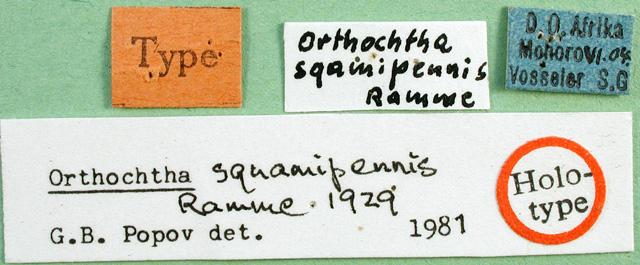 Type
Orthochtha
sqamipennis
Ramme
D. O. Afrika
Mohoro VI.04.
Vosseler S.G
Orthochtha squamipennis
Ramme 1929
G.B. Popov det. 1981
Holo-
type